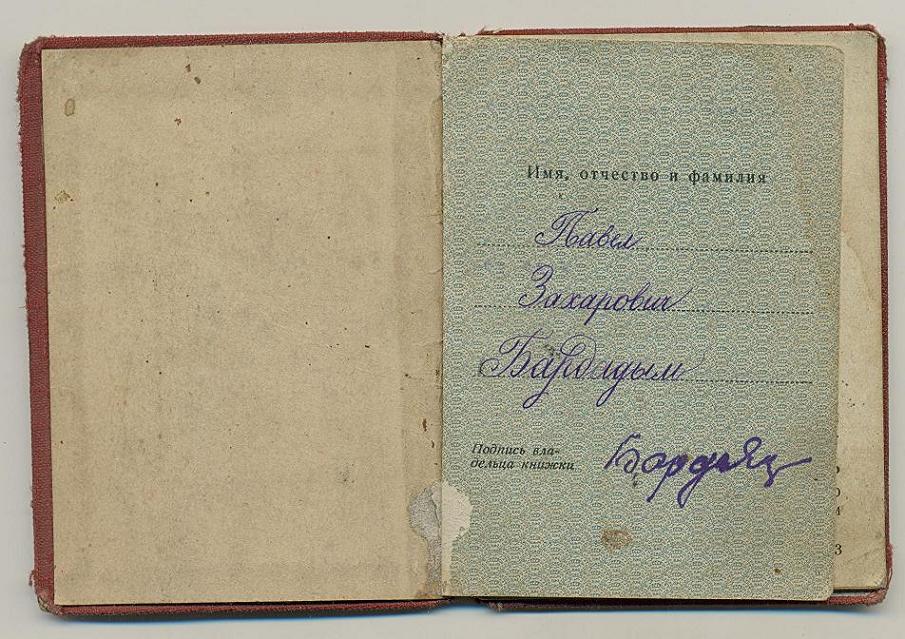 Имя, отчество и фамилия
Павел
Захарович
Бардадым
Подпись вла-
дельца книжки
3